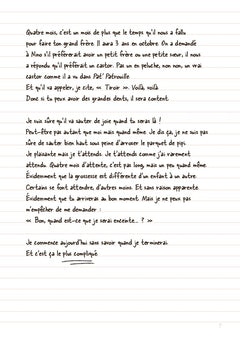 Quatre mois, c'est un mois de plus que le temps qu'il nous a fallu
pour faire ton grand frère. Il aura 3 ans en octobre. On a demandé
à Nino s'il préférerait avoir un petit frère ou une petite sœur, il nous
a répondu qu'il préférerait un castor. Pas un en peluche, non non, un vrai
castor comme il a vu dans Pat' Patrouille.
Et qu'il va appeler, je cite, « Tiroir ». Voilà, voilà.
Donc si tu peux avoir des grandes dents, il sera content.
Je suis sûre qu'il va sauter de joie quand tu seras là !
Peut-être pas autant que moi mais quand même. Je dis ça, je ne suis pas
sûre de sauter bien haut sous peine d'arroser le parquet de pipi.
Je plaisante mais je t'attends. Je t'attends comme j'ai rarement
attendu. Quatre mois d'attente, c'est pas long, mais un peu quand même.
Évidemment que la grossesse est différente d'un enfant à un autre.
Certains se font attendre, d'autres moins. Et sans raison apparente.
Évidemment que tu arriveras au bon moment. Mais je ne peux pas
m'empêcher de me demander :
« Bon, quand est-ce que je serai enceinte... ? »
Je commence aujourd'hui sans savoir quand je terminerai.
Et c'est ça le plus compliqué.